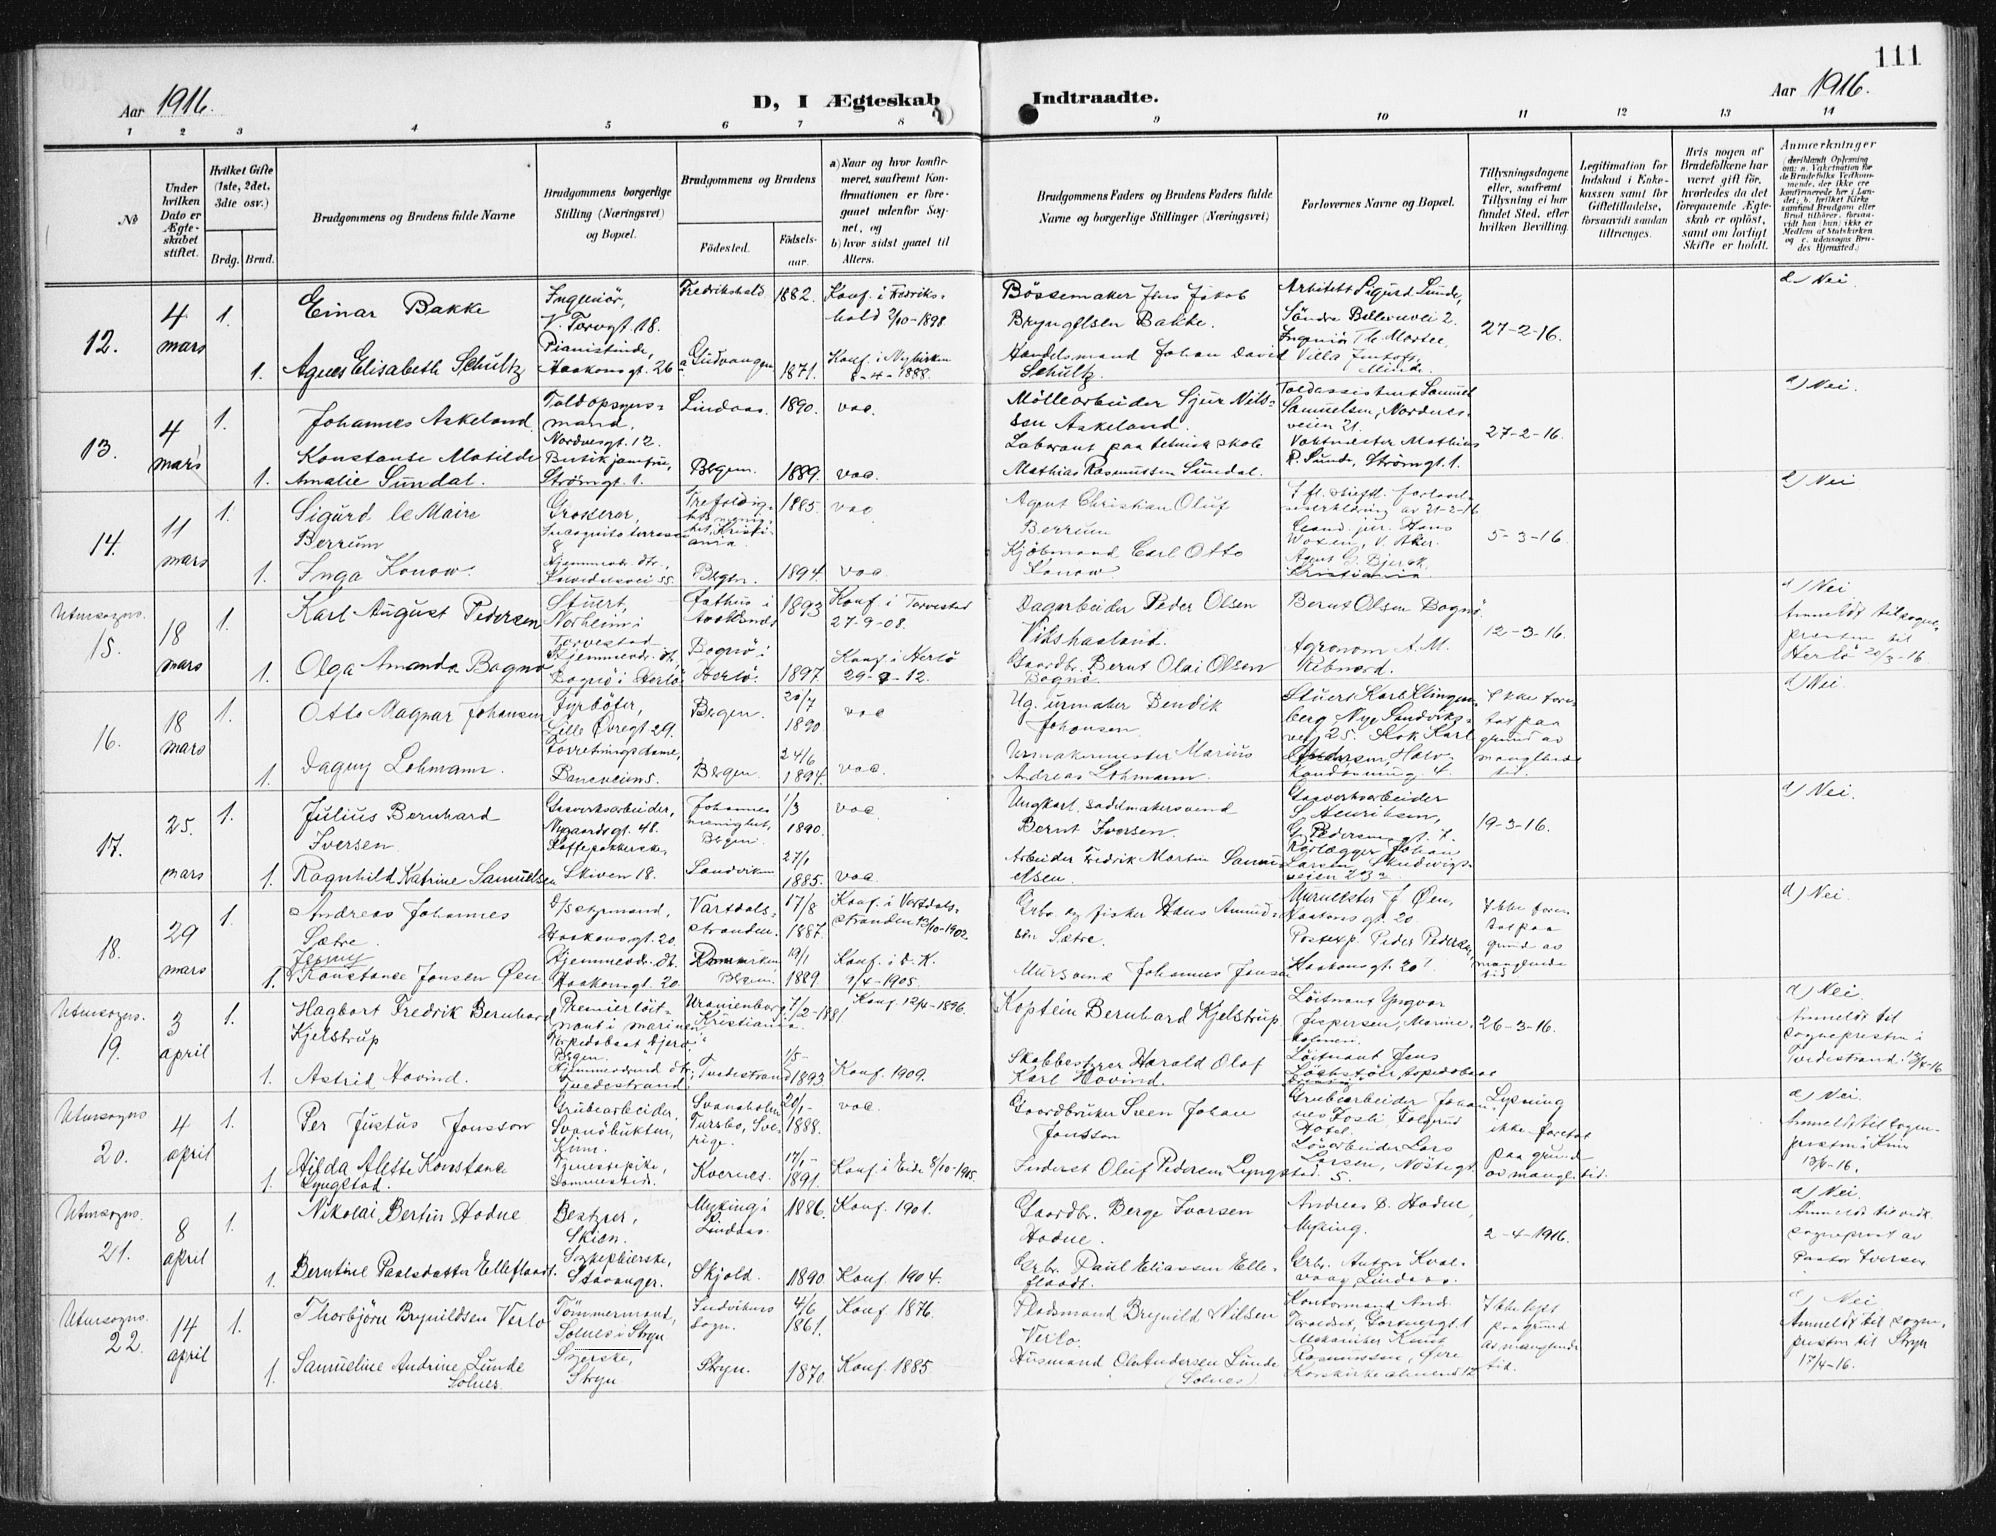 111
Aar 1916.
D, I Ægteskab Indtraadte.
Aar 1916.
1 2 3 4 5 6 7 8 9 10 11 12 13 14
No
Under hvilken Dato er Ægteskabet stiftet.
Hvilket Gifte (1ste, 2det, 3die osv.)
Brdg. Brud.
Brudgommens og Brudens fulde Navne
Brudgommens borgerlige Stilling (Næringsvei) og Bopæl.
Brudgommens og Brudens
Födested.
Födsels-aar.
a) Naar og hvor konfirmeret, saafremt Konfirmationen er foregaaet udenfor Sognet, og
b) hvor sidst gaaet til Alters.
Brudgommens Faders og Brudens Faders fulde Navne og borgerlige Stillinger (Næringsvei)
Forlovernes Navne og Bopæl.
Tillysningsdagene eller, saafremt Tillysning ei har fundet Sted, efter hvilken Bevilling.
Legitimation for Indskud i Enkekassen samt for Giftetilladelse, forsaavidt saadan tiltrænges.
Hvis nogen af Brudefolkene har været gift før, hvorledes da det foregaaende Ægteskab er opløst, samt om lovligt Skifte er holdt.
Anmærkninger
12. 4 mars 1. Einar Bakke Ingeniör, V. Torvgt 18. Fredrikshald 1882. Konf. i Fredrikshald 2/10-1898. Bössemaker Jens Jakob Bryngelsen Bakke. Arkitekt Sigurd Lunde, Söndre 2. 27-2-16. Nei
1. Agnes Elisabeth Schultz Pianistinde, Haakonsgt. 26 Gudvangen 1871. Konf. i Nykirken 8-4-1888. Handelsmand Johan David Schultz. Ingeniör Villa Minde.
13. 4 mars 1. Johannes Askeland Toldopsynsmand, Nordnesgt. 12. Lindaas. 1890. vac. Möllearbeider Sjur Nilssen Askeland. Toldassistent Samuel Samuelsen, Nordnesveien 21. 27-2-16. Nei.
1. Konstanse Matilde Amalie Sundal. Butikjomfru, Strömgt. 1. Bergen. 1889. vac. Laborant paa teknisk skole Mathias Rasmussen Sundal. Vaktmester Mathias R. Sunde, Strömgt. 1.
14. 11 mars 1. Sigurd le Maire Berrum Grosserer, 8 Trefoldighets menighet, Kristiania. 1885. vac Agent Christian Oluf Berrum av 21-2-16 Cand. jur. Hans V. Aker. 5-3-16. Nei
1. Inga Konow. Hjemmev. dtr. 55. Bergen. 1894. vac. Kjöbmand Carl Otto Konow. Agent Kristiania
Utensogns. 15. 18 mars 1. Karl August Pedersen Stuert, Norheim i Torvestad 1893 Konf. i Torvestad 27-9-08. Dagarbeider Peder Olsen Bernt Olsen Bognö 12-3-16. Nei Anmeldt til sognepresten til Herlö 20/3-16
1. Olga Amanda Bognö Hjemmev. dt. Bognö i Herlö. Bognö i Herlö. 1897. Konf i Herlö 29-9-12. Gaardbr. Bernt Olai Olsen Bognö Agronom A. M.
16. 18 mars 1. Otto Magnar Johansen Fyrböter, Lille Övregt 29. Bergen. 20/7 1890 vac Ug. urmaker Bendik Johansen. Stuert Karl Klingenberg, Nye Sandviksvei 25. Ikke foretat paa grund av manglende tid. Nei.
1. Dagny Lohmann. Forretningsdame, Bergen. 24/6 1894. vac. Urmakermester Marius Andreas Lohmann. Kok Karl Andersen, 4.
17. 25. mars 1. Julius Bernhard Iversen. Gasverksarbeider, Nygaardsgt. 48. Johannes menighet, Bergen 1/3 1890. vac Ungkarl. sadelmakersvend Bernt Iversen. Gasverksarbeider S. Henriksen, 19-3-16. Nei.
1. Ragnhild Katrine Samuelsen Kaffepakkerske, Skiven 18. Sandviken 27/1 1885. vac. Arbeider Fredrik Martin Samuelsen. Rörlægger Johan Larsen,
18. 29 mars 1. Andreas Johannes Sætre. Haakonsgt. 20. Vartdalsstranden. 17/8 1887. Konf. i Vartdalsstranden 13/10-1902. Grbr. og fisker Hans Amundsen Sætre. Murmester J. Øen, Haakonsgt. 20. Ikke foretat paa grund av manglende tid Nei.
1. Jenny Konstanse Jonsen Øen Hjemmev. dt. Haakonsgt. 20. Bergen. 19/1 1889. Konf. i D. K. 9/4-1905. Mursvend Johannes Jonsen Postexp. Peder Pedersen, Haakonsgt. 20
Utensogns. 19. 3 april 1. Hagbart Fredrik Bernhard Kjelstrup Premierlöitnant i marinen, Torpedobaat Djerv, Bergen. Uranienborg, Kristiania 7/2-1881 Konf. 12/4-1896. Kaptein Bernhard Kjelstrup Löitnant Yngvar Jespersen, Marineholmen. 26-3-16. Nei. Anmeldt til sogneprest i Tvedestrand. 13/4-16
1. Astrid Hovind. Hjemmev. dtr. Tvedestrand Tvedestrand 1893 Konf. 1909. Skabbestyrer Harald Olaf Karl Hovind. Löitnant Jens
Utensogns 20. 4 april 1. Per Justus Jonsson Grubearbeider, Svanöbukten, Kinn. Sverige. 20/1- 1888. vac. Gaardbruker Sven Johan Jonsson Grubearbeider Johannes Hotel. Lysning ikke foretat paa grund av mangl. tid. Nei. Anmeldt til sogneprest i Kinn 13/4-16.
1. Alida Alette Konstanse Lyngstad. Tjenestepike, Kvernes. 17/1- 1891. Konf. i Eide 8/10-1905. Inderst Oluf Pedersen Lyngstad. Lösarbeider Lars Larsen, Nöstegt. 5.
Utensogns. 21. 8 april 1. Nikolai Bertin Hodne Bestyrer, Skien. Myking i Lindaas. 1886. Konf. 1901. Gaardbr. Berge Iversen Hodne. Andreas D. Hodne, Myking. 2-4-1916. Nei. Anmeldt til vedk. sogneprest av Pastor Iversen
1. Berntine Paulsdatter Elleflaadt. Sykepleierske, Stavanger. Skjold. 1890 Konf. 1904. Grbr. Paul Eliassen Elleflaadt. Grbr. Anton Kvalvaag, Lindaas.
Utensogns. 22. 14 april 1. Thorbjörn Brynildsen Verlo Tömmermand, Solnes i Stryn Indvikens sogn. 4/6 1861. Konf. 1876. Pladsmand Brynild Nilsen Verlo. Kontormand And. Gartnergt. 1 Ikke lyst paa grund av manglende tid. Nei Anmeldt til sognepresten til Stryn 17/4-16.
1. Samueline Andrine Lunde Solnes. Syerske, Stryn Stryn. 1870. Konf. 1885. Husmand Ole Andersen Lunde (Solnes) Mekaniker Knut Rasmussen, Øvre 12.